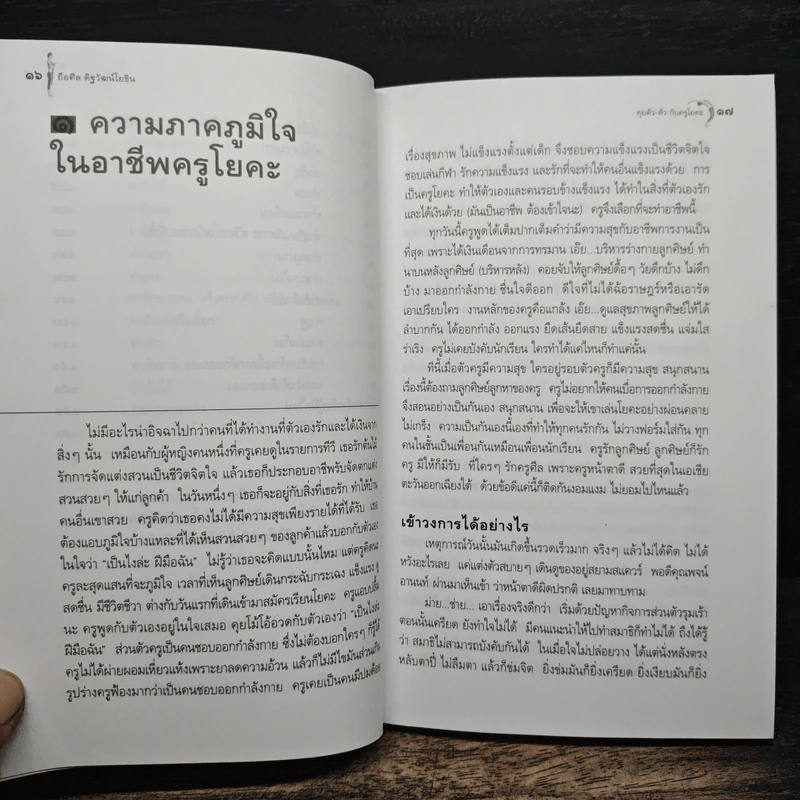 ๑๖ ถือศีล ดิฐวัฒน์โยธิน
๑ ความภาคภูมิใจ
ในอาชีพครูโยคะ
ไม่มีอะไรน่าอิจฉาไปกว่าคนที่ได้ทำงานที่ตัวเองรักและได้เงินจาก
สิ่งๆ นั้น เหมือนกับผู้หญิงคนหนึ่งที่ครูเคยดูในรายการทีวี เธอรักต้นไม้
รักการจัดแต่งสวนเป็นชีวิตจิตใจ แล้วเธอก็ประกอบอาชีพรับจัดตกแต่ง
สวนสวยๆ ให้แก่ลูกค้า ในวันหนึ่งๆ เธอก็จะอยู่กับสิ่งที่เธอรัก ทำให้บ้าน
คนอื่นเขาสวย ครูคิดว่าเธอคงไม่ได้มีความสุขเพียงรายได้ที่ได้รับ เธอ
ต้องแอบภูมิใจบ้างแหละที่ได้เห็นสวนสวยๆ ของลูกค้าแล้วบอกกับตัวเอง
ในใจว่า "เป็นไงล่ะ ฝีมือฉัน" ไม่รู้ว่าเธอจะคิดแบบนั้นไหม แต่ครูคิดนะ
ครูละสุดแสนที่จะภูมิใจ เวลาที่เห็นลูกศิษย์เดินกระฉับกระเฉง แข็งแรง ดู
สดชื่น มีชีวิตชีวา ต่างกับวันแรกที่เดินเข้ามาสมัครเรียนโยคะ ครูแอบปลื้ม
นะ ครูพูดกับตัวเองอยู่ในใจเสมอ คุยโม้โอ้อวดกับตัวเองว่า "เป็นไงล่ะ
ฝีมือฉัน" ส่วนตัวครูเป็นคนชอบออกกำลังกาย ซึ่งไม่ต้องบอกใครๆ ก็รู้ได้
ครูไม่ได้ผ่ายผอมเหี่ยวแห้งเพราะยาลดความอ้วน แล้วก็ไม่มีไขมันส่วนเกิน
รูปร่างครูฟ้องมากว่าเป็นคนชอบออกกำลังกาย ครูเคยเป็นคนมีปมด้อย
คุยตัว-ตัว กับครูโยคะ ๑๗
เรื่องสุขภาพ ไม่แข็งแรงตั้งแต่เด็ก จึงชอบความแข็งแรงเป็นชีวิตจิตใจ
ชอบเล่นกีฬา รักความแข็งแรง และรักที่จะทำให้คนอื่นแข็งแรงด้วย การ
เป็นครูโยคะ ทำให้ตัวเองและคนรอบข้างแข็งแรง ได้ทำในสิ่งที่ตัวเองรัก
และได้เงินด้วย (มันเป็นอาชีพ ต้องเข้าใจนะ) ครูจึงเลือกที่จะทำอาชีพนี้
ทุกวันนี้ครูพูดได้เต็มปากเต็มคำว่ามีความสุขกับอาชีพการงานเป็น
ที่สุด เพราะได้เงินเดือนจากการทรมาน เอ๊ย...บริหารร่างกายลูกศิษย์ ทำ
นาบนหลังลูกศิษย์ (บริหารหลัง) คอยจับให้ลูกศิษย์ดื้อๆ วัยดึกบ้าง ไม่ดึก
บ้าง มาออกกำลังกาย ชื่นใจดีออก ดีใจที่ไม่ได้ฉ้อราษฎร์หรือเอารัด
เอาเปรียบใคร งานหลักของครูคือแกล้ง เอ๊ย...ดูแลสุขภาพลูกศิษย์ให้ได้
ลำบากกัน ได้ออกกำลัง ออกแรง ยืดเส้นยืดสาย แข็งแรงสดชื่น แจ่มใส
ร่าเริง ครูไม่เคยบังคับนักเรียน ใครทำได้แค่ไหนก็ทำแค่นั้น
ทีนี้เมื่อตัวครูมีความสุข ใครอยู่รอบตัวครูก็มีความสุข สนุกสนาน
เรื่องนี้ต้องถามลูกศิษย์ลูกหาของครู ครูไม่อยากให้คนเบื่อการออกกำลังกาย
จึงสอนอย่างเป็นกันเอง สนุกสนาน เพื่อจะให้เขาเล่นโยคะอย่างผ่อนคลาย
ไม่เกร็ง ความเป็นกันเองนี้เองที่ทำให้ทุกคนรักกัน ไม่วางฟอร์มใส่กัน ทุก
คนในชั้นเป็นเพื่อนกันเหมือนเพื่อนนักเรียน ครูรักลูกศิษย์ ลูกศิษย์ก็รัก
ครู มีให้ก็มีรับ ที่ใครๆ รักครูศีล เพราะครูหน้าตาดี สวยที่สุดในเอเชีย
ตะวันออกเฉียงใต้ ด้วยข้อดีแค่นี้ก็ติดกันงอมแงม ไม่ยอมไปไหนแล้ว
เข้าวงการได้อย่างไร
เหตุการณ์วันนั้นมันเกิดขึ้นรวดเร็วมาก จริงๆ แล้วไม่ได้คิด ไม่ได้
หวังอะไรเลย แค่แต่งตัวสบายๆ เดินดูของอยู่สยามสแควร์ พอดีคุณพจน์
อานนท์ ผ่านมาเห็นเข้า ว่าหน้าตาดีผิดปรกติ เลยมาทาบทาม
ม่าย...ช่าย... เอาเรื่องจริงดีกว่า เริ่มด้วยปัญหากิจการส่วนตัวรุมเร้า
ตอนนั้นเครียด ยังทำใจไม่ได้ มีคนแนะนำให้ไปทำสมาธิก็ทำไม่ได้ ถึงได้รู้
ว่า สมาธิไม่สามารถบังคับกันได้ ในเมื่อใจไม่ปล่อยวาง ได้แต่นั่งหลังตรง
หลับตาปี๋ ไม่ลืมตา แล้วก็ข่มจิต ยิ่งข่มมันก็ยิ่งเครียด ยิ่งเงียบมันก็ยิ่ง